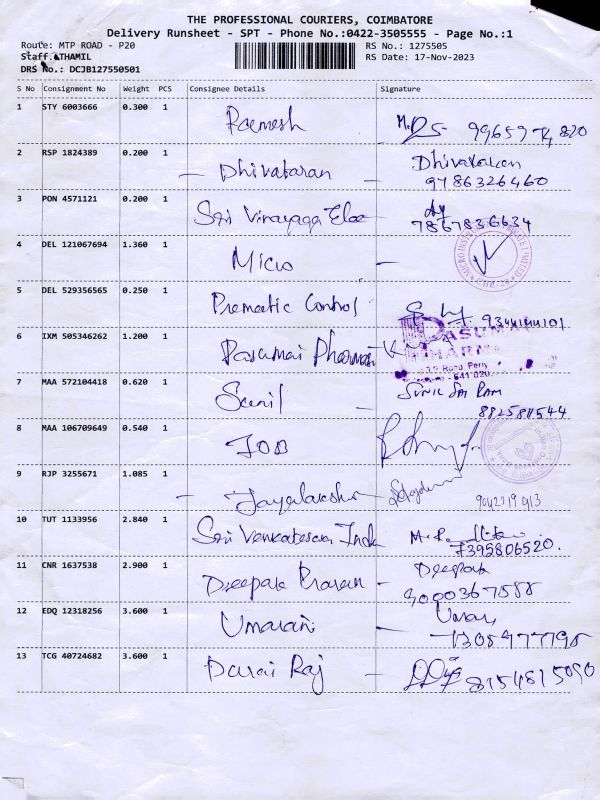 THE PROFESSIONAL COURIERS, COIMBATORE
Delivery Runsheet - SPT - Phone No.:0422-3505555 - Page No.:1
Route: MTP ROAD - P20 RS No.: 1275505
Staff: ATHAMIL RS Date: 17-Nov-2023
DRS No.: DCJB127550501
S No Consignment No Weight PCS Consignee Details Signature
1 STY 6003666 0.300 1 Ramesh
2 RSP 1824389 0.200 1 Dhivakaran Dhivakaran
9786326460
3 PON 4571121 0.200 1 Sri Vinayaga
7867836634
4 DEL 121067694 1.360 1 Micro
5 DEL 529356565 0.250 1 Prematic Control
6 IXM 505346262 1.200 1 Pasumai
PHARMA
641 020
7 MAA 572104418 0.620 1 Sunil SUNIL SAI RAM
8 MAA 106709649 0.540 1 JOB
9 RJP 3255671 1.085 1
10 TUT 1133956 2.840 1 Sri
7395806520.
11 CNR 1637538 2.900 1 Deepak Deepak
9000367588
12 EDQ 12318256 3.600 1 Umarani
13 TCG 40724682 3.600 1 Durai Raj 8154815090